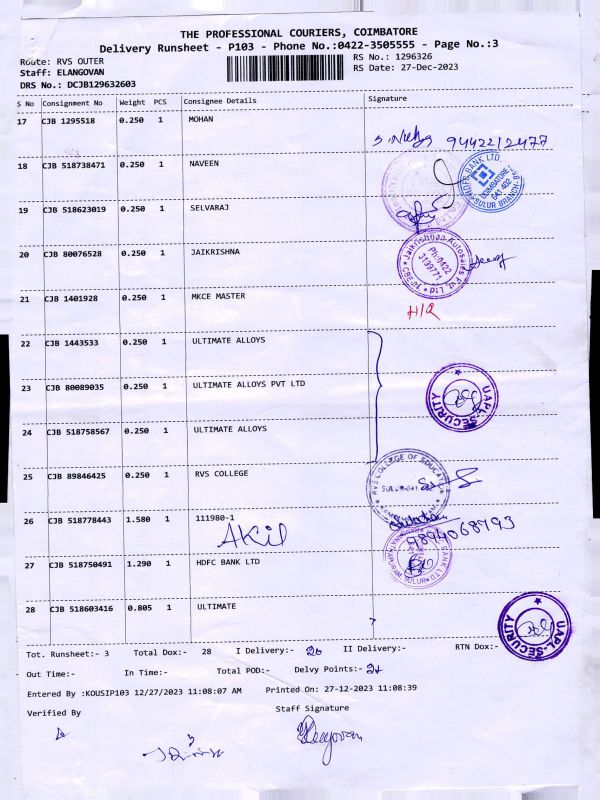 THE PROFESSIONAL COURIERS, COIMBATORE
Delivery Runsheet - P103 - Phone No.:0422-3505555 - Page No.:3
Route: RVS OUTER
RS No.: 1296326
Staff: ELANGOVAN
RS Date: 27-Dec-2023
DRS No.: DCJB129632603
S No Consignment No Weight PCS Consignee Details Signature
17 CJB 1295518 0.250 1 MOHAN
9442212477
18 CJB 518738471 0.250 1 NAVEEN
19 CJB 518623019 0.250 1 SELVARAJ
20 CJB 80076528 0.250 1 JAIKRISHNA
Jaikrishnaa Autosales Pvt. Ltd
Ph:0422
3199771
21 CJB 1401928 0.250 1 MKCE MASTER
22 CJB 1443533 0.250 1 ULTIMATE ALLOYS
23 CJB 80089035 0.250 1 ULTIMATE ALLOYS PVT LTD
UAPL-SECURITY
24 CJB 518758567 0.250 1 ULTIMATE ALLOYS
25 CJB 89846425 0.250 1 RVS COLLEGE
RVS COLLEGE OF EDUCATION
26 CJB 518778443 1.580 1 111980-1
AKil
9894068793
27 CJB 518750491 1.290 1 HDFC BANK LTD
28 CJB 518603416 0.805 1 ULTIMATE
UAPL-SECURITY
Tot. Runsheet:- 3 Total Dox:- 28 I Delivery:- 26 II Delivery:- RTN Dox:-
Out Time:- In Time:- Total POD:- Delvy Points:- 24
Entered By :KOUSIP103 12/27/2023 11:08:07 AM Printed On: 27-12-2023 11:08:39
Verified By Staff Signature